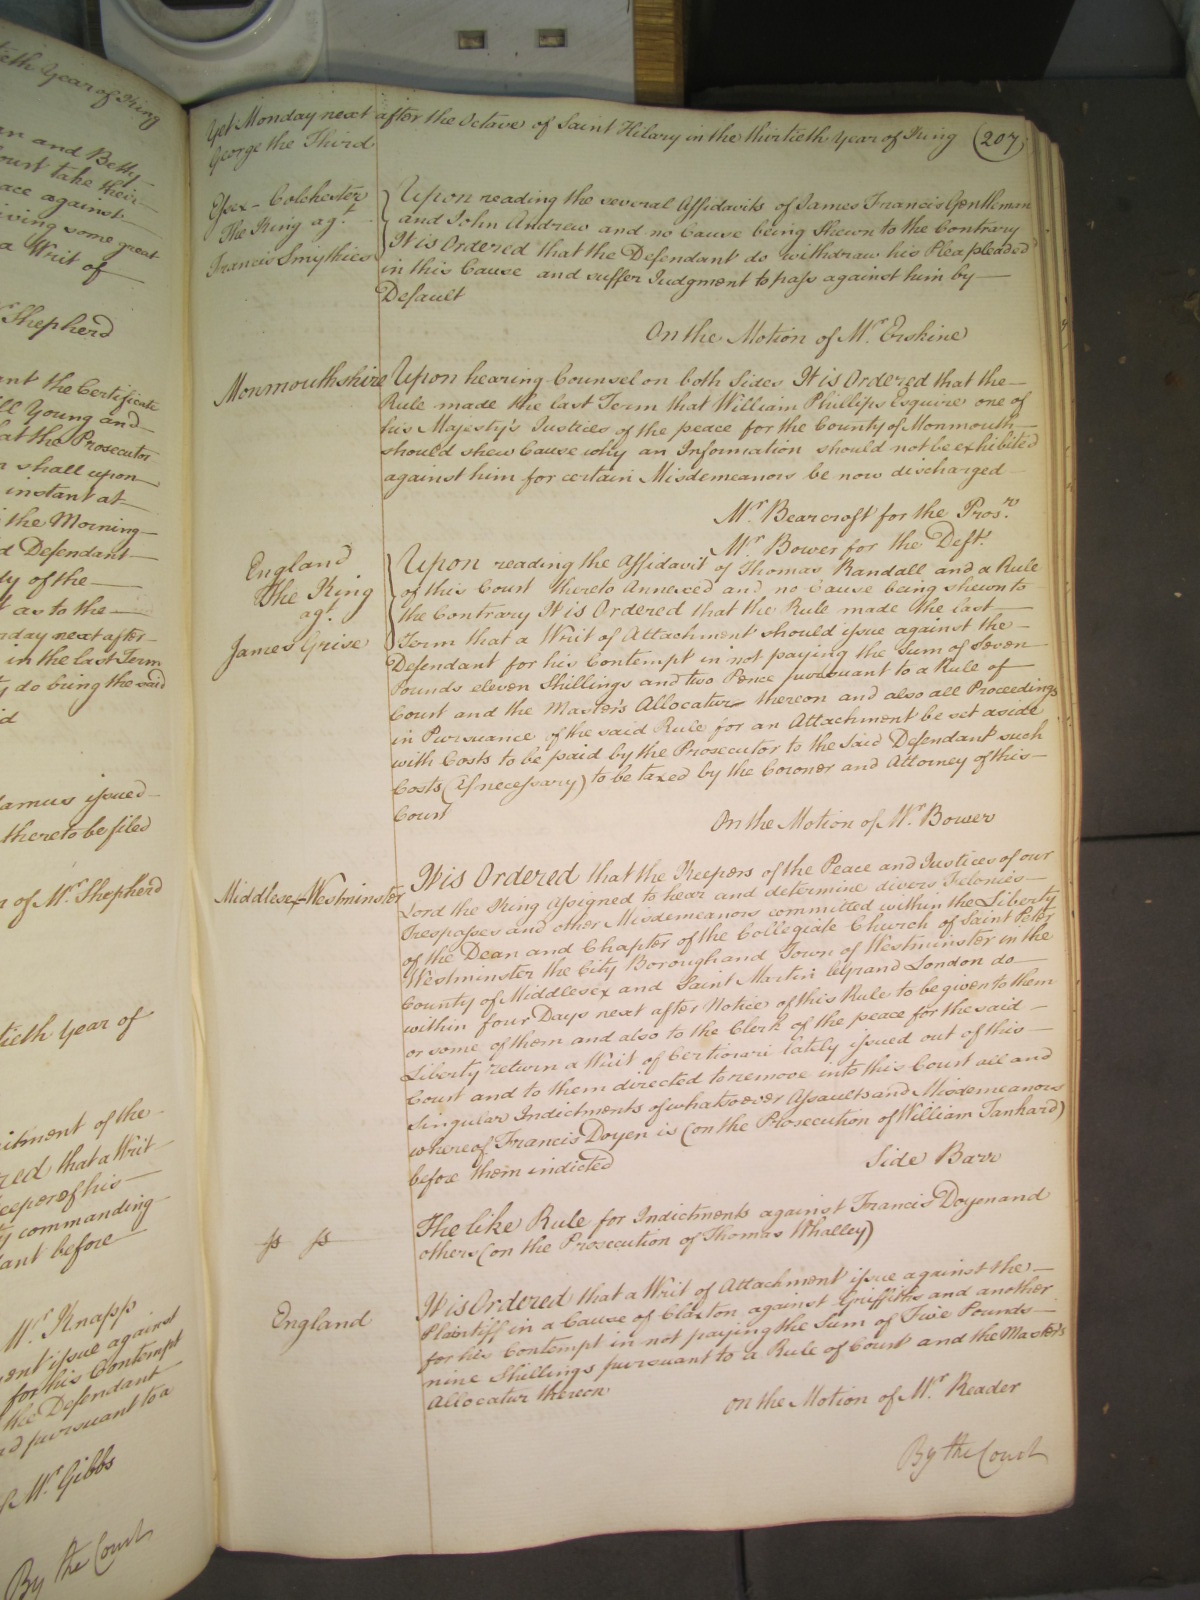 ieth Year of King
an and Betty
Court take their
ace against
iving some great
a Writ of
Shepherd
ant the Certificate
ill Young and
at the Prosecutor
n shall upon
instant at
the Morning
d Defendant
ty of the
t as to the
nday next after
in the last Term
ty do bring the said
id
amus issued
thereto be filed
n of Mr. Shepherd
tieth Year of
itment of the
red that a Writ
eeper of his
ty commanding
ant before
Mr. Knapp
ent issue against
for his Contempt
the Defendant
nd pursuant to a
Mr. Gibbs
By the Court
Yet Monday next after the Octave of Saint Hilary in the thirtieth Year of King (207)
George the Third
Essex - Colchester
The King agt.
Francis Smythies
Upon reading the several Affidavits of James Francis Gentleman
and John Andrew and no Cause being Shewn to the Contrary
It is Ordered that the Defendant do withdraw his Plea pleaded
in this Cause and suffer Judgment to pass against him by
Default
On the Motion of Mr. Erskine
Monmouthshire
Upon hearing Counsel on both Sides It is Ordered that the
Rule made the last Term that William Phillips Esquire one of
his Majesty's Justices of the peace for the County of Monmouth
should shew Cause why an Information should not be exhibited
against him for certain Misdemeanors be now discharged
Mr. Bearcroft for the Prosr.
Mr. Bower for the Deft.
England
The King
agt.
James Grise
Upon reading the Affidavit of Thomas Randall and a Rule
of this Court thereto Annexed and no Cause being shewn to
the Contrary It is Ordered that the Rule made the last
Term that a Writ of Attachment should issue against the
Defendant for his Contempt in not paying the Sum of Seven
Pounds eleven Shillings and two Pence pursuant to a Rule of
Court and the Master's Allocatur thereon and also all Proceedings
in Pursuance of the said Rule for an Attachment be set aside
with Costs to be paid by the Prosecutor to the Said Defendant such
Costs (if necessary) to be taxed by the Coroner and Attorney of this
Court
On the Motion of Mr. Bower
Middlesex - Westminster
It is Ordered that the Keepers of the Peace and Justices of our
Lord the King assigned to hear and determine divers Felonies
Trespasses and other Misdemeanors committed within the Liberty
of the Dean and Chapter of the Collegiate Church of Saint Peter
Westminster the City Borough and Town of Westminster in the
County of Middlesex and Saint Martin le Grand London do
within four Days next after Notice of this Rule to be given to them
or some of them and also to the Clerk of the peace for the said
Liberty return a Writ of Certiorari lately issued out of this
Court and to them directed to remove into this Court all and
Singular Indictments of whatsoever Assaults and Misdemeanors
whereof Francis Doyen is (on the Prosecution of William Tankard)
before them indicted
Side Barr
ss ss
The like Rule for Indictments against Francis Doyen and
others (on the Prosecution of Thomas Whalley)
England
It is Ordered that a Writ of Attachment issue against the
Plaintiff in a Cause of Claxton against Griffiths and another
for his Contempt in not paying the Sum of Five Pounds
nine Shillings pursuant to a Rule of Court and the Master's
Allocatur thereon
on the Motion of Mr. Reader
By the Court